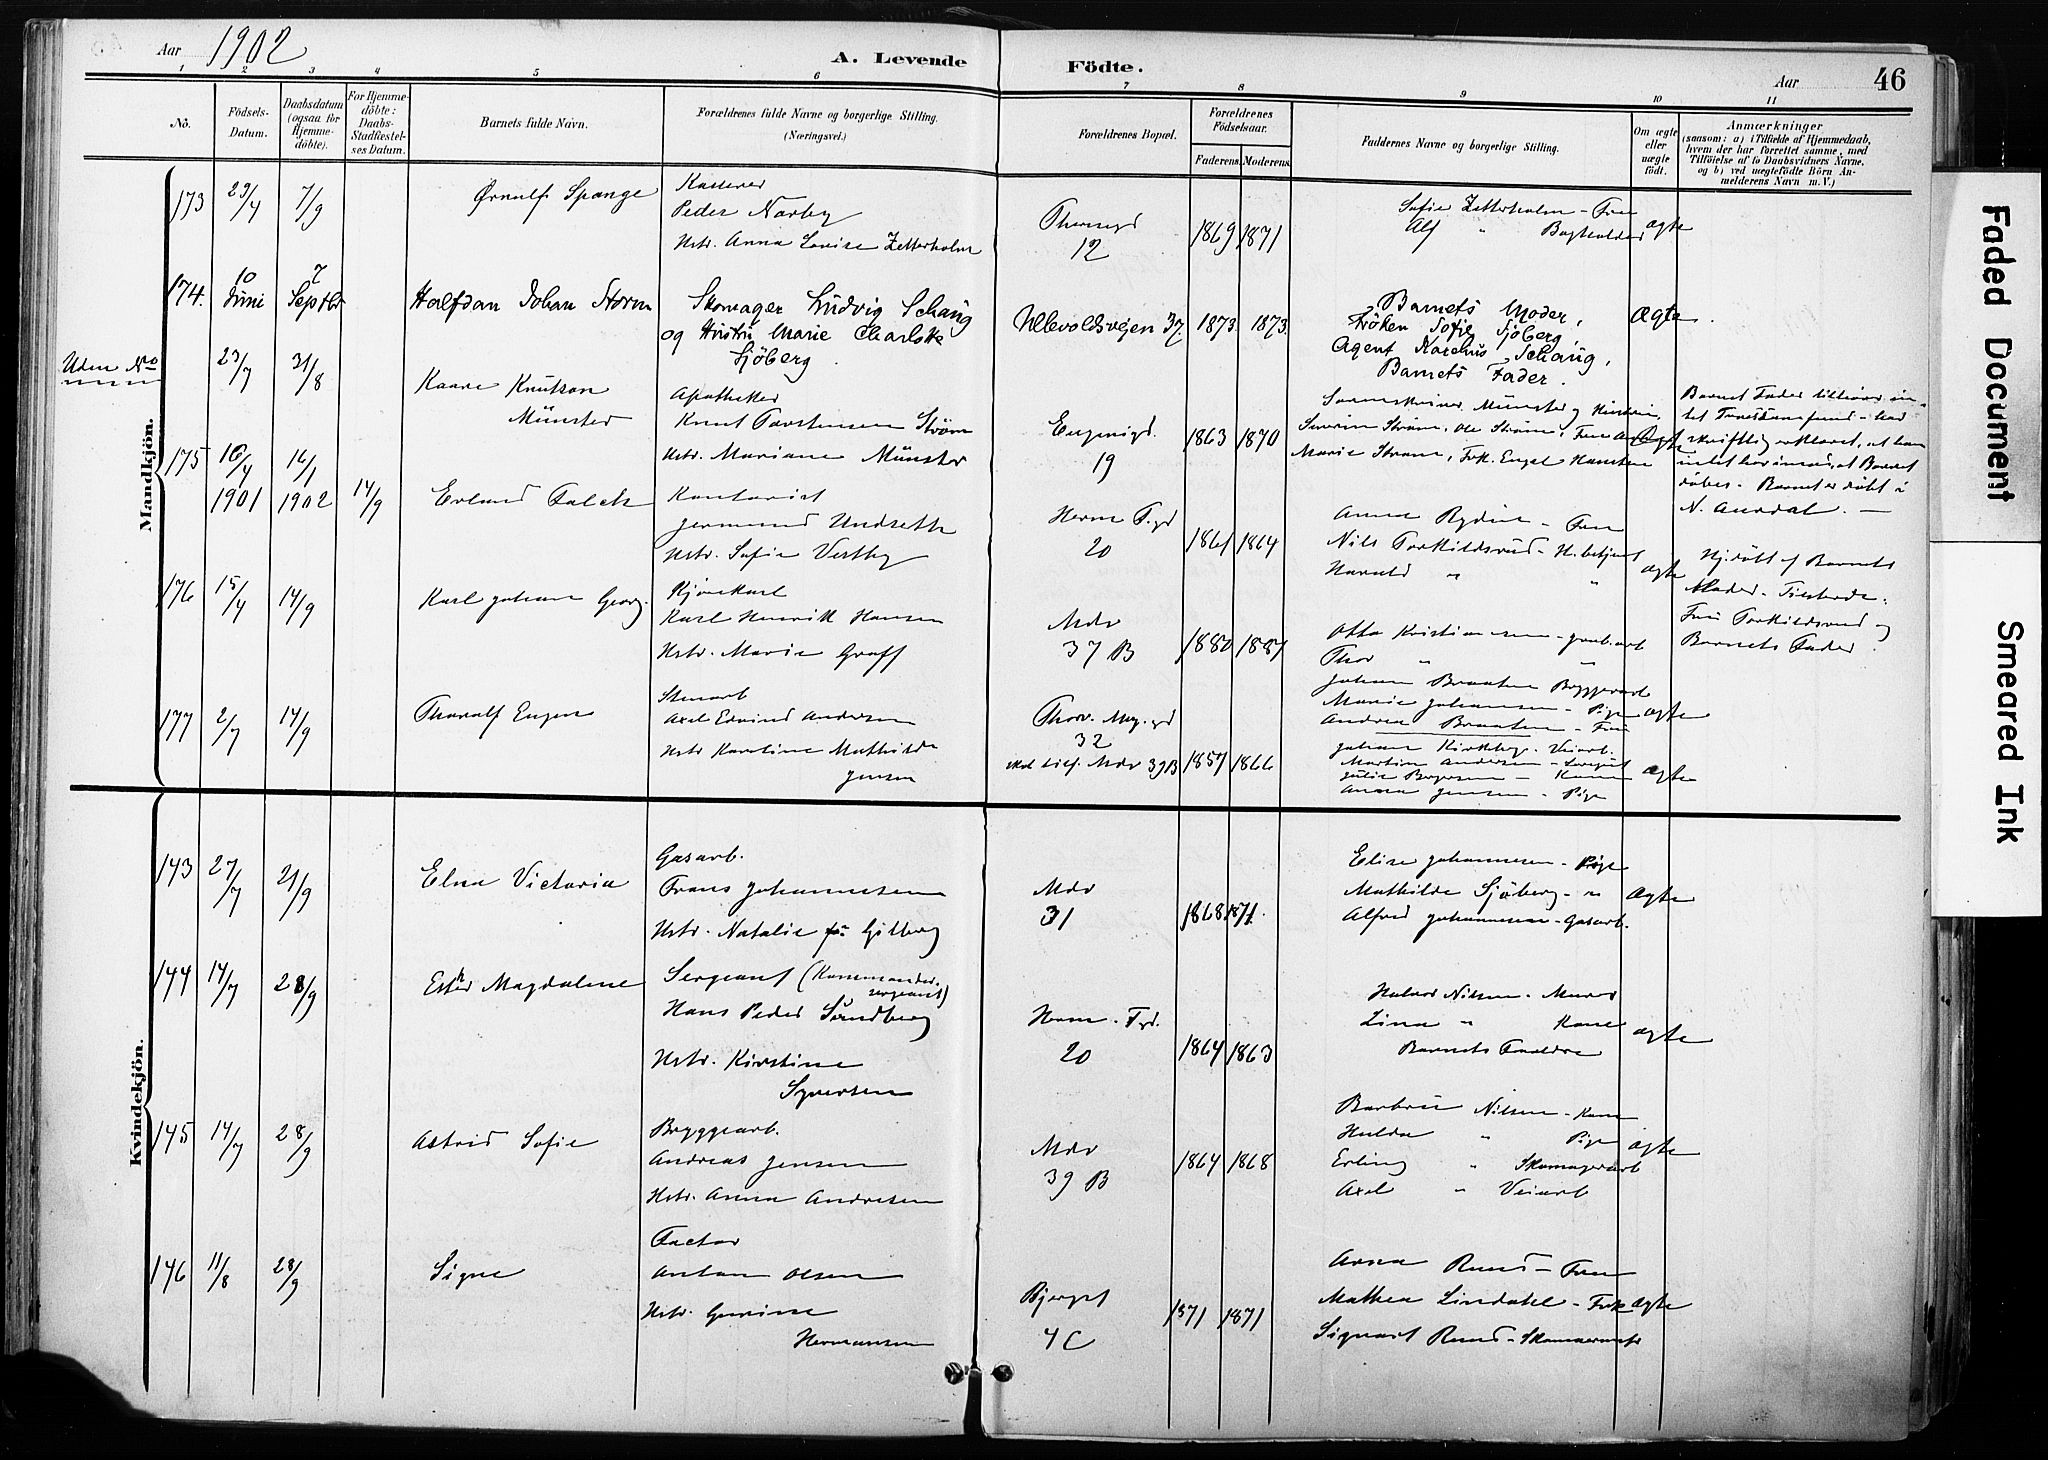 Aar 1902
A. Levende Födte.
Aar 46
1 2 3 4 5 6 7 8 9 10 11
No.
Födsels-Datum.
Daabsdatum (ogsaa for Hjemme-döbte).
For Hjemme-döbte: Daabs-Stadfæstel-ses Datum.
Barnets fulde Navn.
Forældrenes fulde Navne og borgerlige Stilling.
(Næringsvei.)
Forældrenes Bopæl.
Forældrenes Födselsaar.
Faderens. Moderens.
Faddernes Navne og borgerlige Stilling.
Om ægte eller uægte födt.
Anmærkninger
(saasom: a) i Tilfælde af Hjemmedaab, hvem der har forrettet samme, med Tilföielse af to Daabsvidners Navne, og b) ved uægtefödte Börn An-melderens Navn m. V.)
Mandkjön.
173 29/4 7/9 Ørnulf Spange
Kasserer
Peder Narby
Hstr. Anna Lovise Zetterholm
12 1869 1871
Sofie Zetterholm - Frue
Alf " Bogholder
ægte
174. 10 Juni 7 Septbr Halfdan Johan Storm
Skomager Ludvig Schaug
og Hustru Marie Charlotte
Sjöberg
Ullevoldsvejen 37 1873. 1873.
Barnets Moder,
Fröken Sofie Sjöberg,
Agent Karelius Schaug,
Barnets Fader.
Ægte
Uden No
23/7 31/8 Kaare Knutson
Münster
Apotheker
Knut Torstensen Strøm
Hstr. Mariane Münster
Eugenigd.
19 1863 1870
Sorenskriver Münster og Hustru,
Severin Strøm, Ole Strøm,
Marie Strøm, Frk. Engel Hansteen
Barnet Fader tilhører in-
tet Troessamfund - har
skriftlig erklæret, at han
intet har imod, at Barnet
døbes - Barnet er døbt i
N. Aurdal. —
175 10/4 1901 16/1 1902 14/9 Erland Falck
Kontorist
Jermund Undseth
Hstr. Sofie Vestby
Herm Fgd
20 1861 1864
Anna Rydin - Frue
Nils Torkildsrud - H.betjent
Harald " "
ægte
Hj.døbt af Barnets
Moder. Tilstede:
Fru Torkildsrud og
Barnets Fader.
176 15/4 14/9 Karl Johan Georg.
Kjørekarl
Karl Henrik Hansen
Hstr. Marie Graff
Mdv
37 B 1880 1881
Otto Kristiansen - grub.arb
Thor " "
Johan Braaten Byggearb
Marie Johansen - Pige
Andrea Braaten - Fru
ægte
177 2/7 14/9 Thoralf Eugen
Stenarb
Axel Edvind Andersen
Hstr Karoline Mathilde
Jensen
Thorv. Mey. gd
32
Mdv 39B 1857 1866
Johan Kirkeby. Veiarb.
Martin Andersen
Julie Borgersen - Kone
Anna Jensen - Pige
ægte
Kvindekjön.
143 27/7 21/9 Elna Victoria
Gasarb.
Frans Johannesen
Hstr. Natalie Gilberg
Mdv
31 1868 1871.
Elise Johannesen - Pige
Mathilde Sjöberg - "
Alfred Johannesen - Gasarb.
Ægte
144 14/7 28/9 Esther Magdalene
Sergeant (Kommander-
sergeant)
Hans Peder Sundberg
Hstr. Kirstine
Syversen
Herm. Fgd.
20 1864 1863
Halvor Nilsen - Murer
Lina " Kone
Barnets Forældre
ægte
145 14/7 28/9 Astrid Sofie
Bryggearb.
Andreas Jensen
Hstr. Anna Andresen
Mdv
39 B 1864 1868
Barbro Nilsen - Kone
Hulda " Pige
Erling " Skomagerarb
Axel " Veiarb
ægte
146 11/8 28/9 Signe
Factor
Anton Olsen
Hstr. Gurine
Hermansen
Bjerget
4C 1871 1871
Anna Ruud - Frue
Mathea Lindahl - Frk
Sigvart Ruud - Skomagermstr
ægte
Faded Document
Smeared Ink